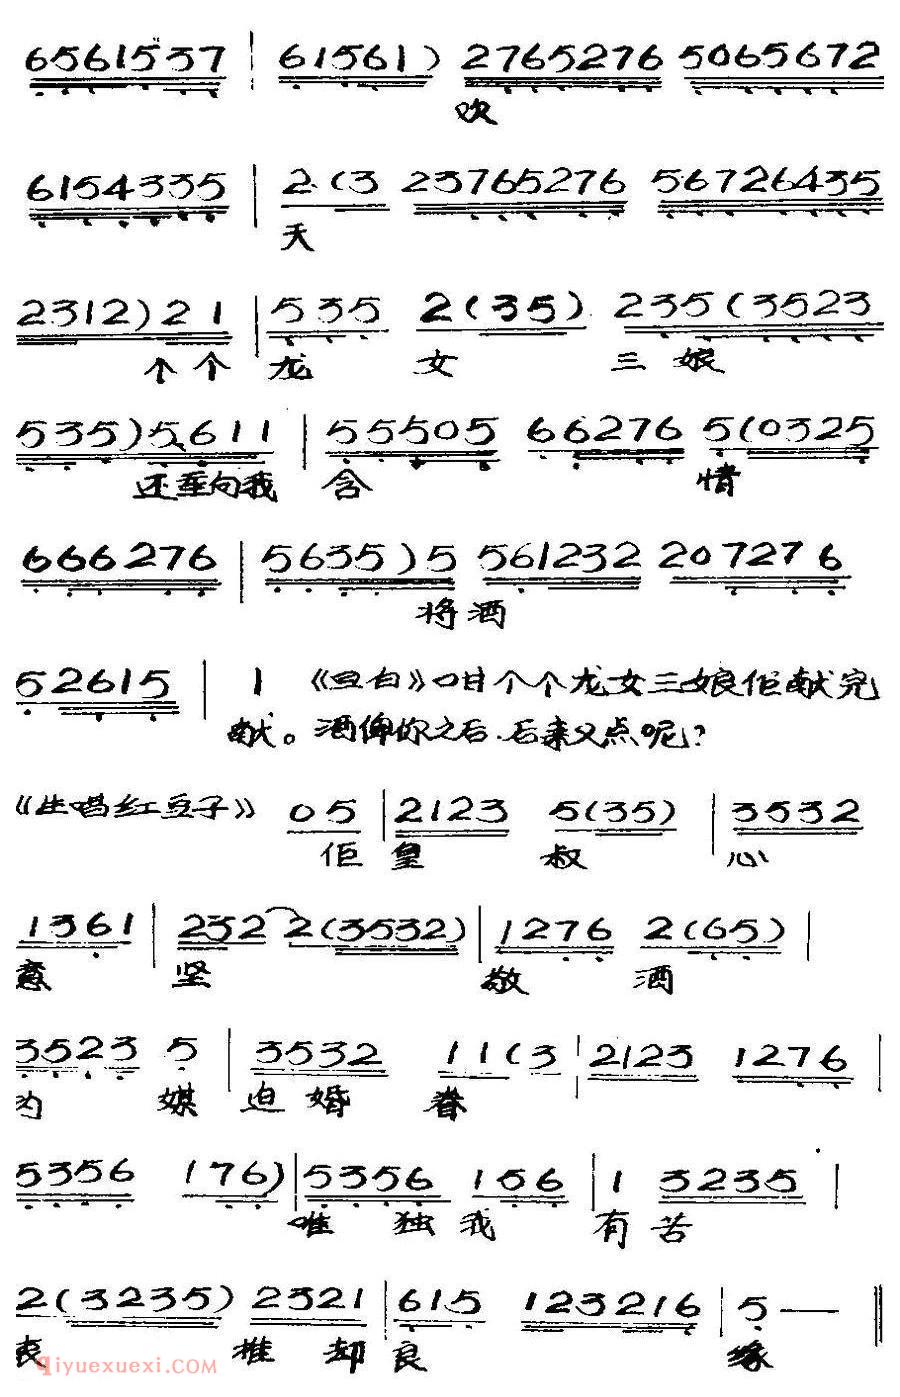 6561537 | 61561) 2765276 5065672
欢
6154335 | 2·(3 23765276 56726435
天
2312) 2 1 | 535 2(35) 235(3523
个个 龙 女 三 娘
535) 5·611 | 55505 66276 5(0325
还垂向我 含 情
666276 | 5635) 5 561232 207276
将酒
52615 | 1 《旦白》咁个个龙女三娘佢献完
献。酒俾你之后，后来又点呢？
《生唱红豆子》 05 | 2123 5(35) | 3532
佢 皇 叔 心
1361 | 232 2(3532) | 1276 2(65) |
意 坚 敬 酒
3523 5 | 3532 11(3 | 2123 1276 |
为 媒 迫 婚 眷
5356 176) | 5356 156 | 1 3235 |
唯 独 我 有 苦
2(3235) 2321 | 615 123216 | 5 —— ‖
衷 推 却 良 缘
qiyuexuexi.com